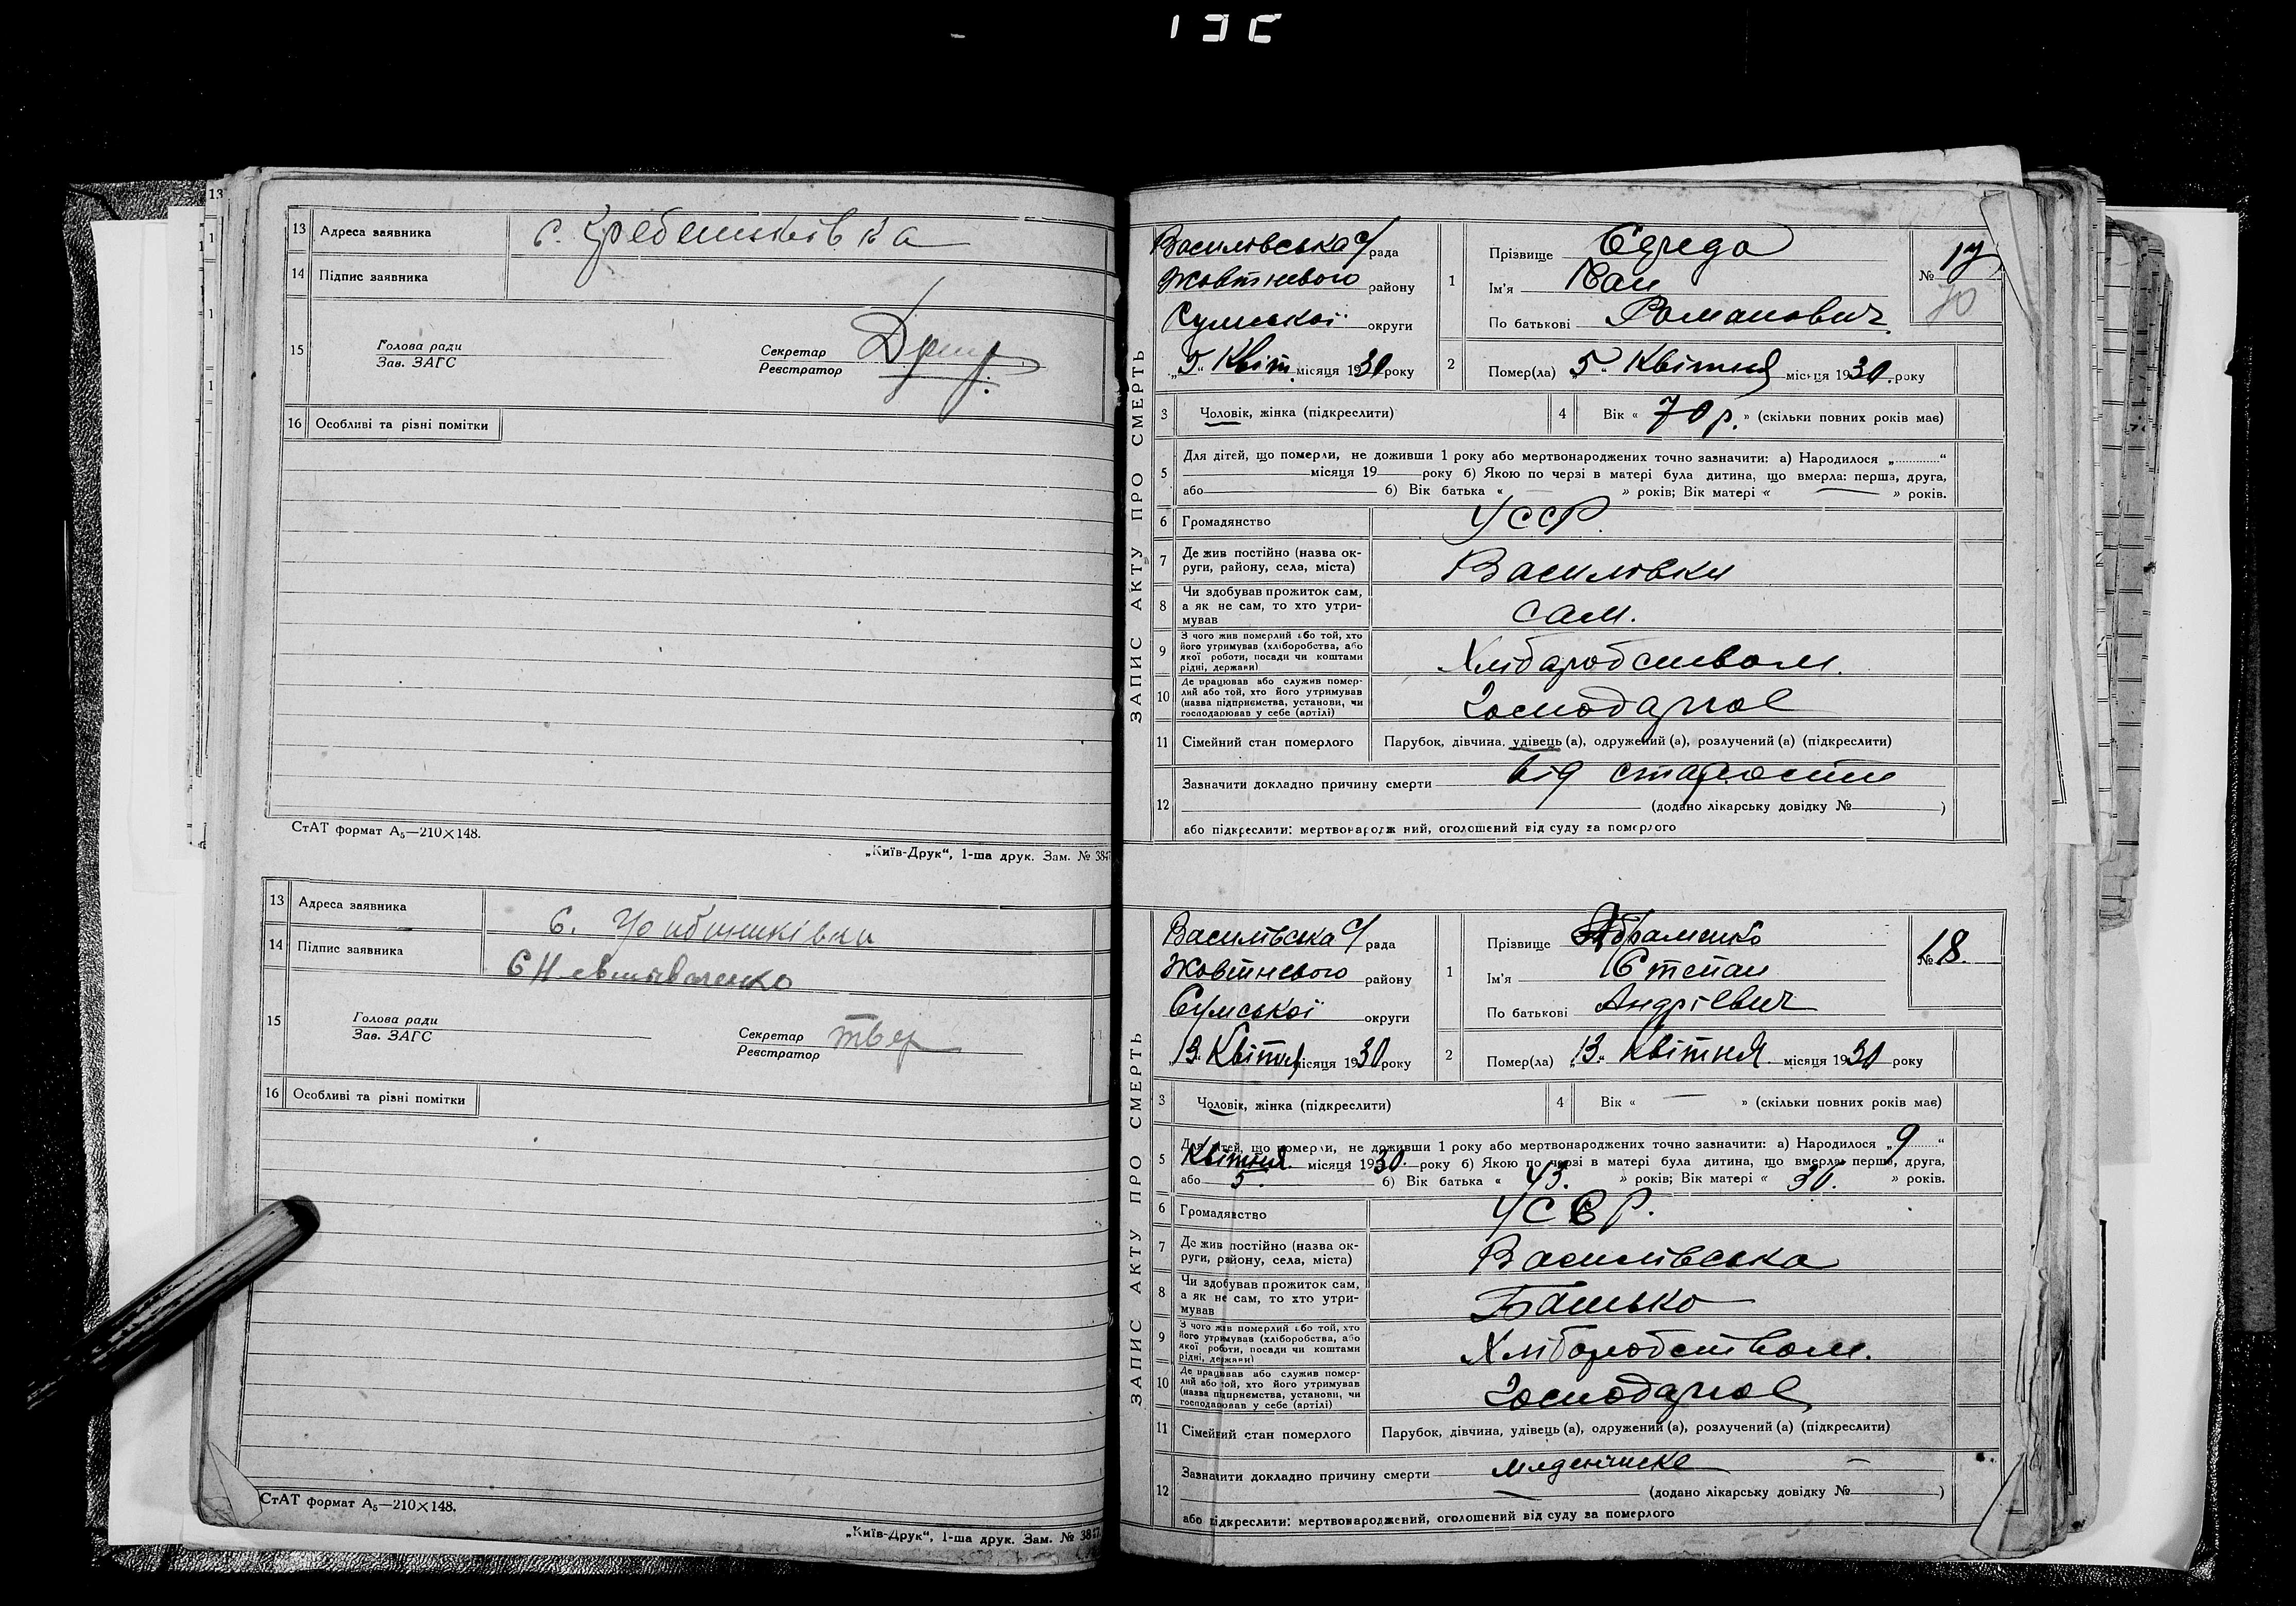 13
13 Адреса заявника с. Гребениківка
14 Підпис заявника
15 Голова ради
Зав. ЗАГС
Секретар
Реєстратор
16 Особливі та різні помітки
СтАТ формат А₅—210×148.
„Київ-Друк“, 1-ша друк. Зам. № 384
13 Адреса заявника с.
14 Підпис заявника
15 Голова ради
Зав. ЗАГС
Секретар
Реєстратор
16 Особливі та різні помітки
СтАТ формат А₅—210×148.
„Київ-Друк“, 1-ша друк. Зам. № 3847.
ЗАПИС АКТУ ПРО СМЕРТЬ
Василівська с/рада
Жовтневого району
Сумської округи
„5“ Квіт. місяця 1930 року
1 Прізвище Середа
Ім'я
По батькові Романович
№ 17
70
2 Помер(ла) „5“ Квітня місяця 1930. року
3 Чоловік, жінка (підкреслити)
4 Вік « 70 р. » (скільки повних років має)
5 Для дітей, що померли, не доживши 1 року або мертвонароджених точно зазначити: а) Народилося „ “
місяця 19 року б) Якою по черзі в матері була дитина, що вмерла: перша, друга,
або б) Вік батька « — » років; Вік матері « — » років.
6 Громадянство УССР.
7 Де жив постійно (назва округи, району, села, міста) Василовка
8 Чи здобував прожиток сам, а як не сам, то хто утримував сам.
9 З чого жив померлий або той, хто його утримував (хліборобства, або якої роботи, посади чи коштами рідні, держави) Хліборобством.
10 Де працював або служив померлий або той, хто його утримував (назва підприємства, установи, чи господарював у себе (артілі) Господарює
11 Сімейний стан померлого Парубок, дівчина, удівець (а), одружений (а), розлучений (а) (підкреслити)
12 Зазначити докладно причину смерти від старости
(додано лікарську довідку № )
або підкреслити: мертвонароджений, оголошений від суду за померлого
ЗАПИС АКТУ ПРО СМЕРТЬ
Василівська с/рада
Жовтневого району
Сумської округи
„13“ Квітня місяця 1930 року
1 Прізвище Абраменко
Ім'я Степан
По батькові Андрієвич
№ 18.
2 Помер(ла) „13“ Квітня місяця 1930 року
3 Чоловік, жінка (підкреслити)
4 Вік « — » (скільки повних років має)
5 Для дітей, що померли, не доживши 1 року або мертвонароджених точно зазначити: а) Народилося „9“
Квітня місяця 1930. року б) Якою по черзі в матері була дитина, що вмерла: перша, друга,
або 5. б) Вік батька « 43. » років; Вік матері « 30. » років.
6 Громадянство УССР.
7 Де жив постійно (назва округи, району, села, міста) Василівська
8 Чи здобував прожиток сам, а як не сам, то хто утримував Батько
9 З чого жив померлий або той, хто його утримував (хліборобства, або якої роботи, посади чи коштами рідні, держави) Хліборобством.
10 Де працював або служив померлий або той, хто його утримував (назва підприємства, установи, чи господарював у себе (артілі) Господарює
11 Сімейний стан померлого Парубок, дівчина, удівець (а), одружений (а), розлучений (а) (підкреслити)
12 Зазначити докладно причину смерти
(додано лікарську довідку № )
або підкреслити: мертвонароджений, оголошений від суду за померлого